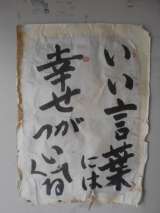 いい言葉
には
幸せが
ついてね
く